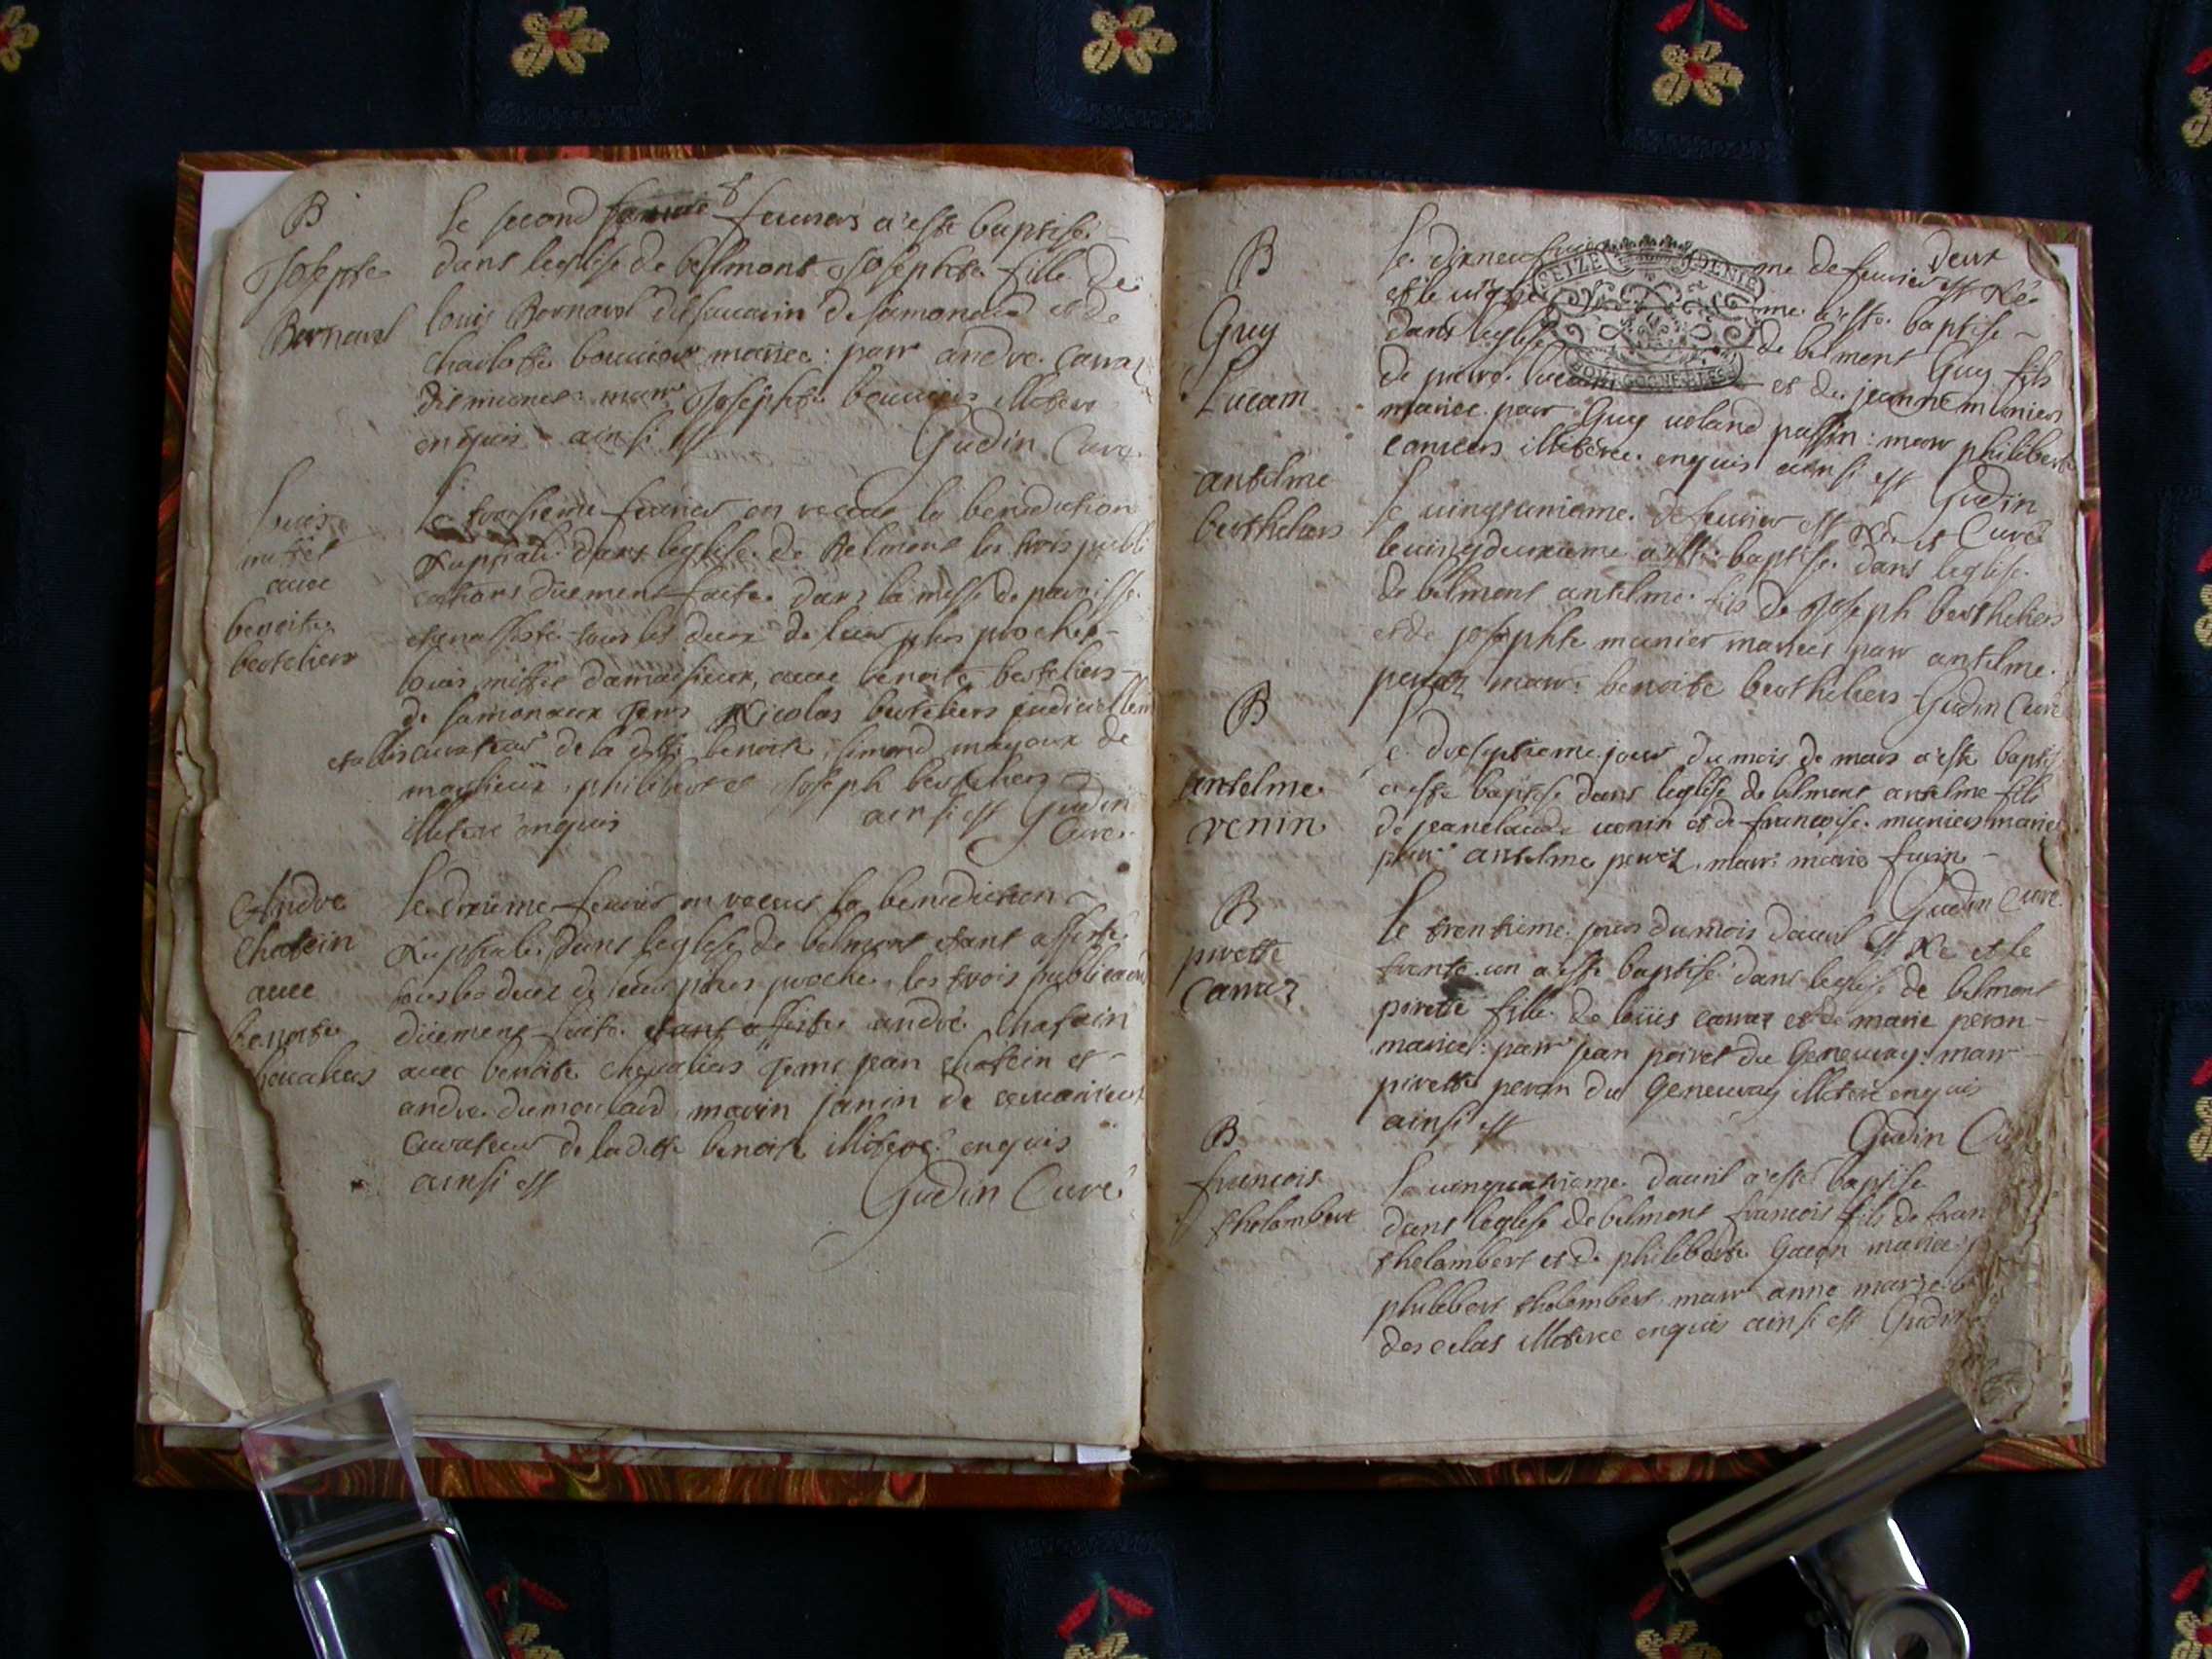 B
Josephte
Bornard
Le second feurier a'este baptisé
dans leglise de bellmont Josephte fille de
louis Bornard dit sauarin de samonoud et de
Charlotte bouuier mariee: parr andre Carraz
marr Josephte bouuier illiteré
enquis ainsi est Gudin Curé
Louis
miffet
auec
benoite
berteliers
Le troisieme feurier on receue la benediction
Nuptiale dans leglise de Belmont les trois publi
cations duement faite dans la messe de parroisse
assisté tous les deux de leur plus proches
louis miffet damaisieux, auec benoite berteliers
de samonoux Nicolas berteliers judiciellem
establis curateur de la ditte benoite, simond
philibert et Joseph berteliers
illiteré enquis ainsi est Gudin
Curé
Andre
Chatein
auec
benoite
cheualiers
Le dixieme feurier on receue la benediction
Nuptiale dans leglise de belmont estant assisté
tous les deux de leur plus proche, les trois publications
düement faite estant assisté andré Chatein
auec benoite cheualiers jean chatein et
andre dumoulard, marin janin de
Curateur de laditte benoite illiteré enquis
ainsi est Gudin Curé
SEIZE DENIE
BOURGOGNE BRESSE
B
Guy
Lucam
Le dixneufuieme de feurier est Né
deux
et le uigtieme a'este baptisé
dans leglise de belmont Guy fils
de et de jeanne muniers
mariee parr Guy uoland passin: marr philiberte
illiteree enquis ainsi est Gudin
Curé
antelme
bertheliers
Le uingtunieme de feurier est Né et
le uingdeuxieme a'este baptisé dans leglise
de belmont antelme fils de Joseph bertheliers
et de josephte munier mariees parr antelme
marr benoite bertheliers Gudin Curé
B
antelme
venin
Le dixseptieme jour du mois de mars a'este baptisé
a'este baptisé dans leglise de belmont antelme fils
de jeanclaude uenin et de francoise muniers mariés
parr antelme perret, marr marie
Gudin Curé
B
pirette
Carraz
Le trentieme jour du mois dauril est Né et le
trente un a'este baptisé dans leglise de belmont
pirette fille de loüis carraz et de marie peron
mariees: parr jean poiret du Geneuray: marr
pirette peron du Geneuray illiteré enquis
ainsi est
Gudin Curé
B
francois
thelambert
Le uingquatrieme dauril a'este baptisé
dans leglise de belmont francois fils de fran
thelambert et de philiberte Gacon mariee p
philibert thelambert marr anne marie
des illiteree enquis ainsi est Gudin